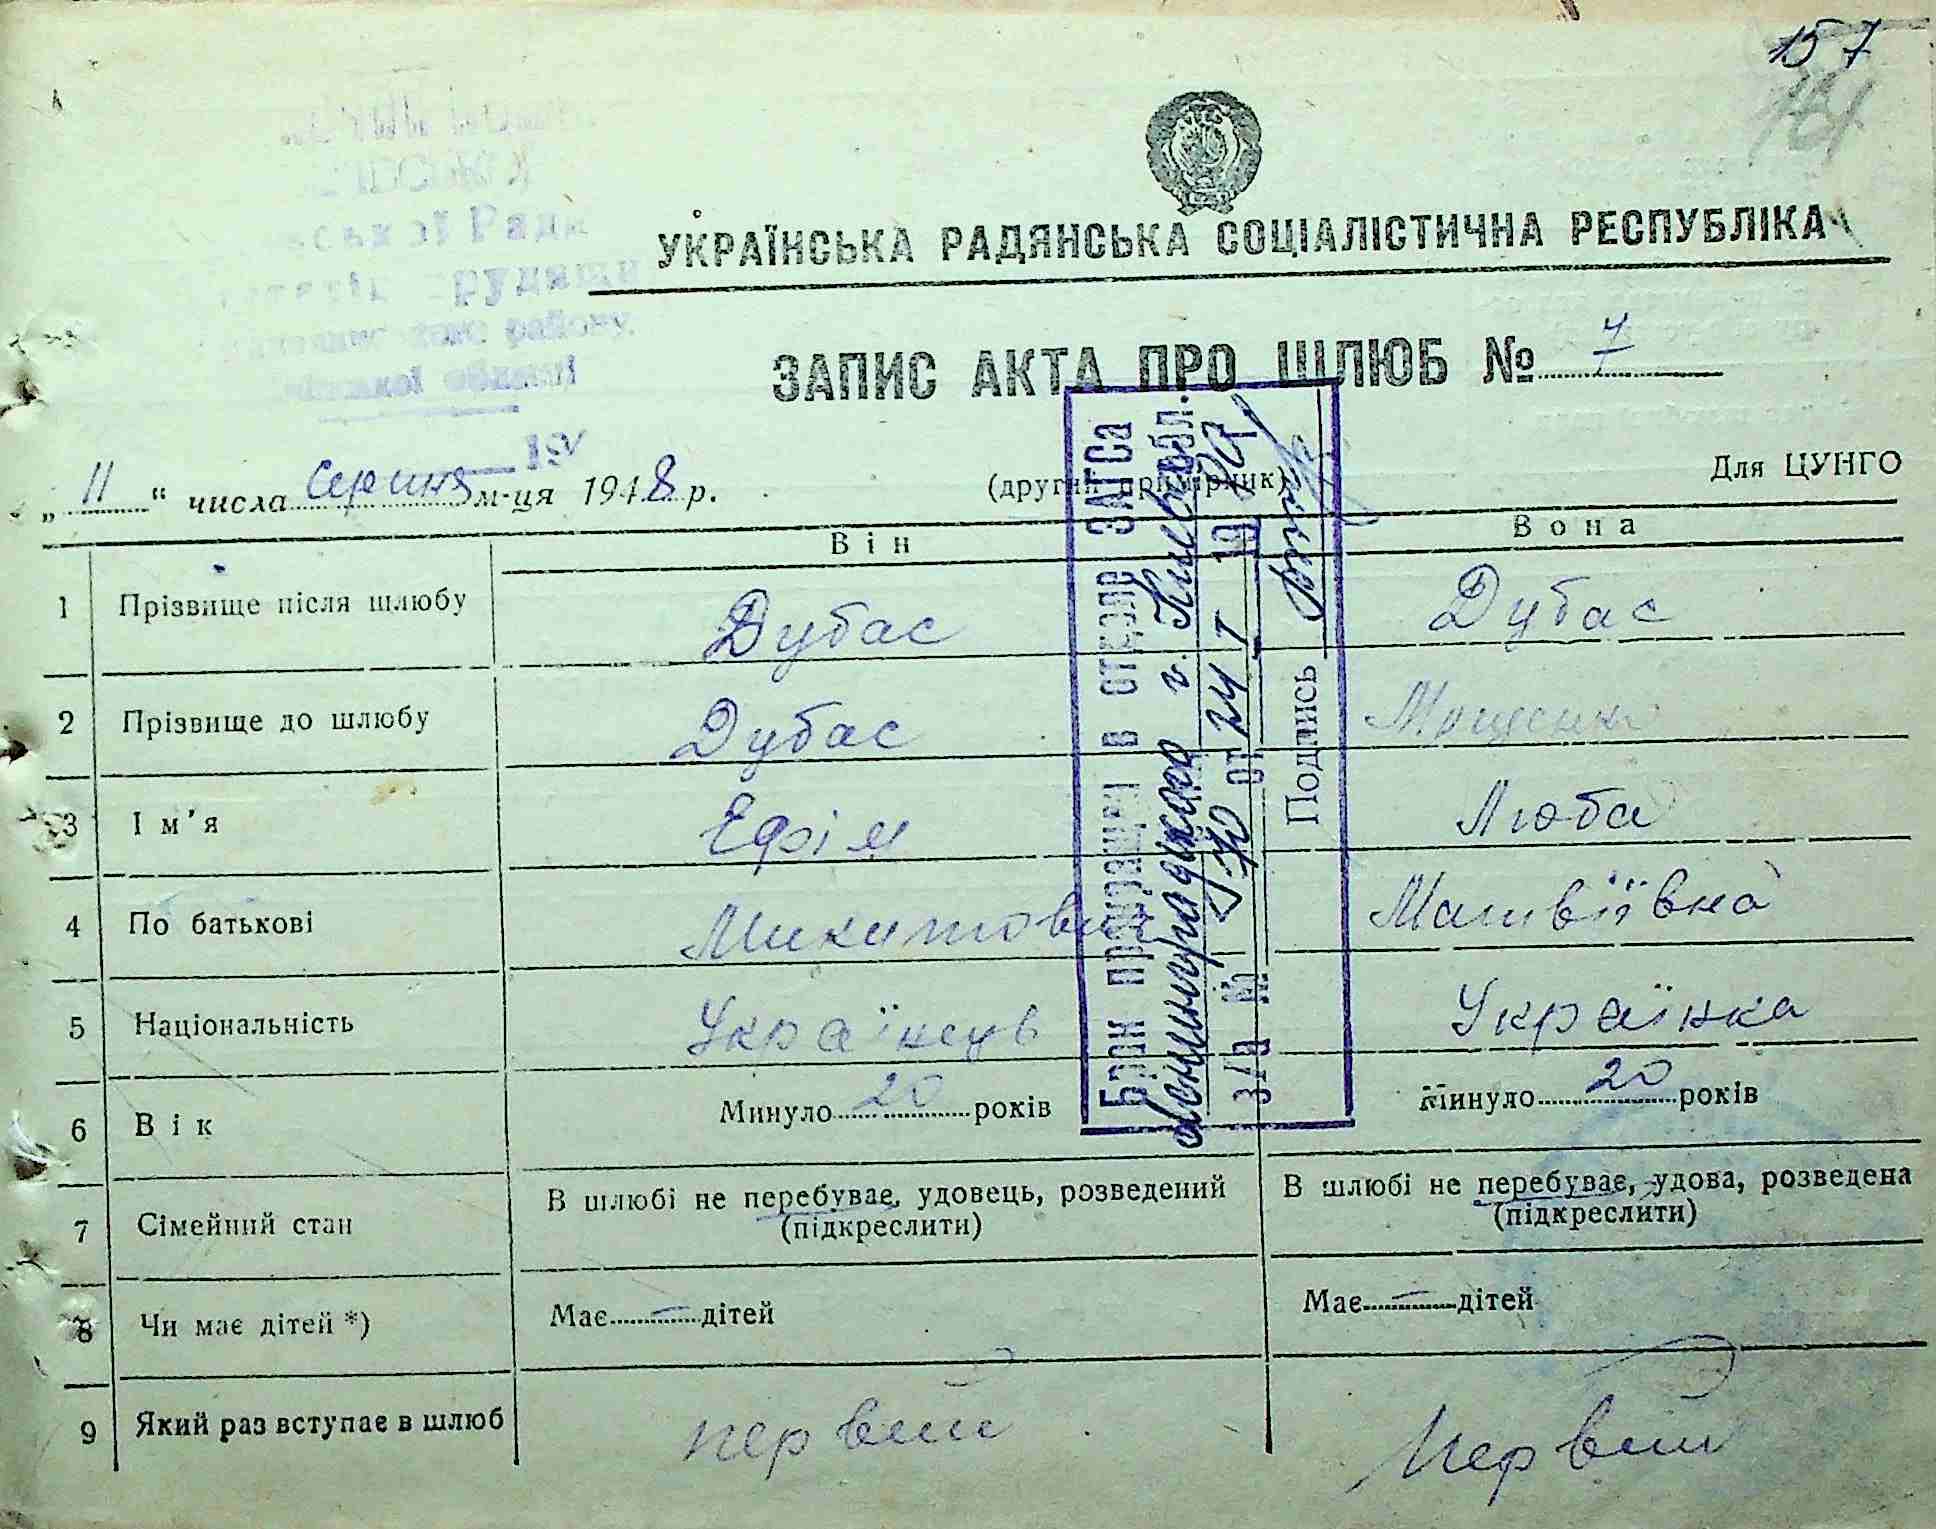 157
УКРАЇНСЬКА РАДЯНСЬКА СОЦІАЛІСТИЧНА РЕСПУБЛІКА
ської Ради
району
області
ЗАПИС АКТА ПРО ШЛЮБ № 7
19
„11“ числа Серпня м-ця 1948 р.
(другий примірник)
Для ЦУНГО
Він
Вона
1 Прізвище після шлюбу Дубас Дубас
2 Прізвище до шлюбу Дубас
3 Ім'я Ефім Люба
4 По батькові Микитович Матвіївна
5 Національність Українець Українка
6 Вік Минуло 20 років Минуло 20 років
7 Сімейний стан В шлюбі не перебуває, удовець, розведений (підкреслити) В шлюбі не перебуває, удова, розведена (підкреслити)
8 Чи має дітей *) Має — дітей Має — дітей
9 Який раз вступає в шлюб первий Первий
Брак прекращен в отделе ЗАГСа
г. Киевобл.
з/а № от 24 I 19
Подпись